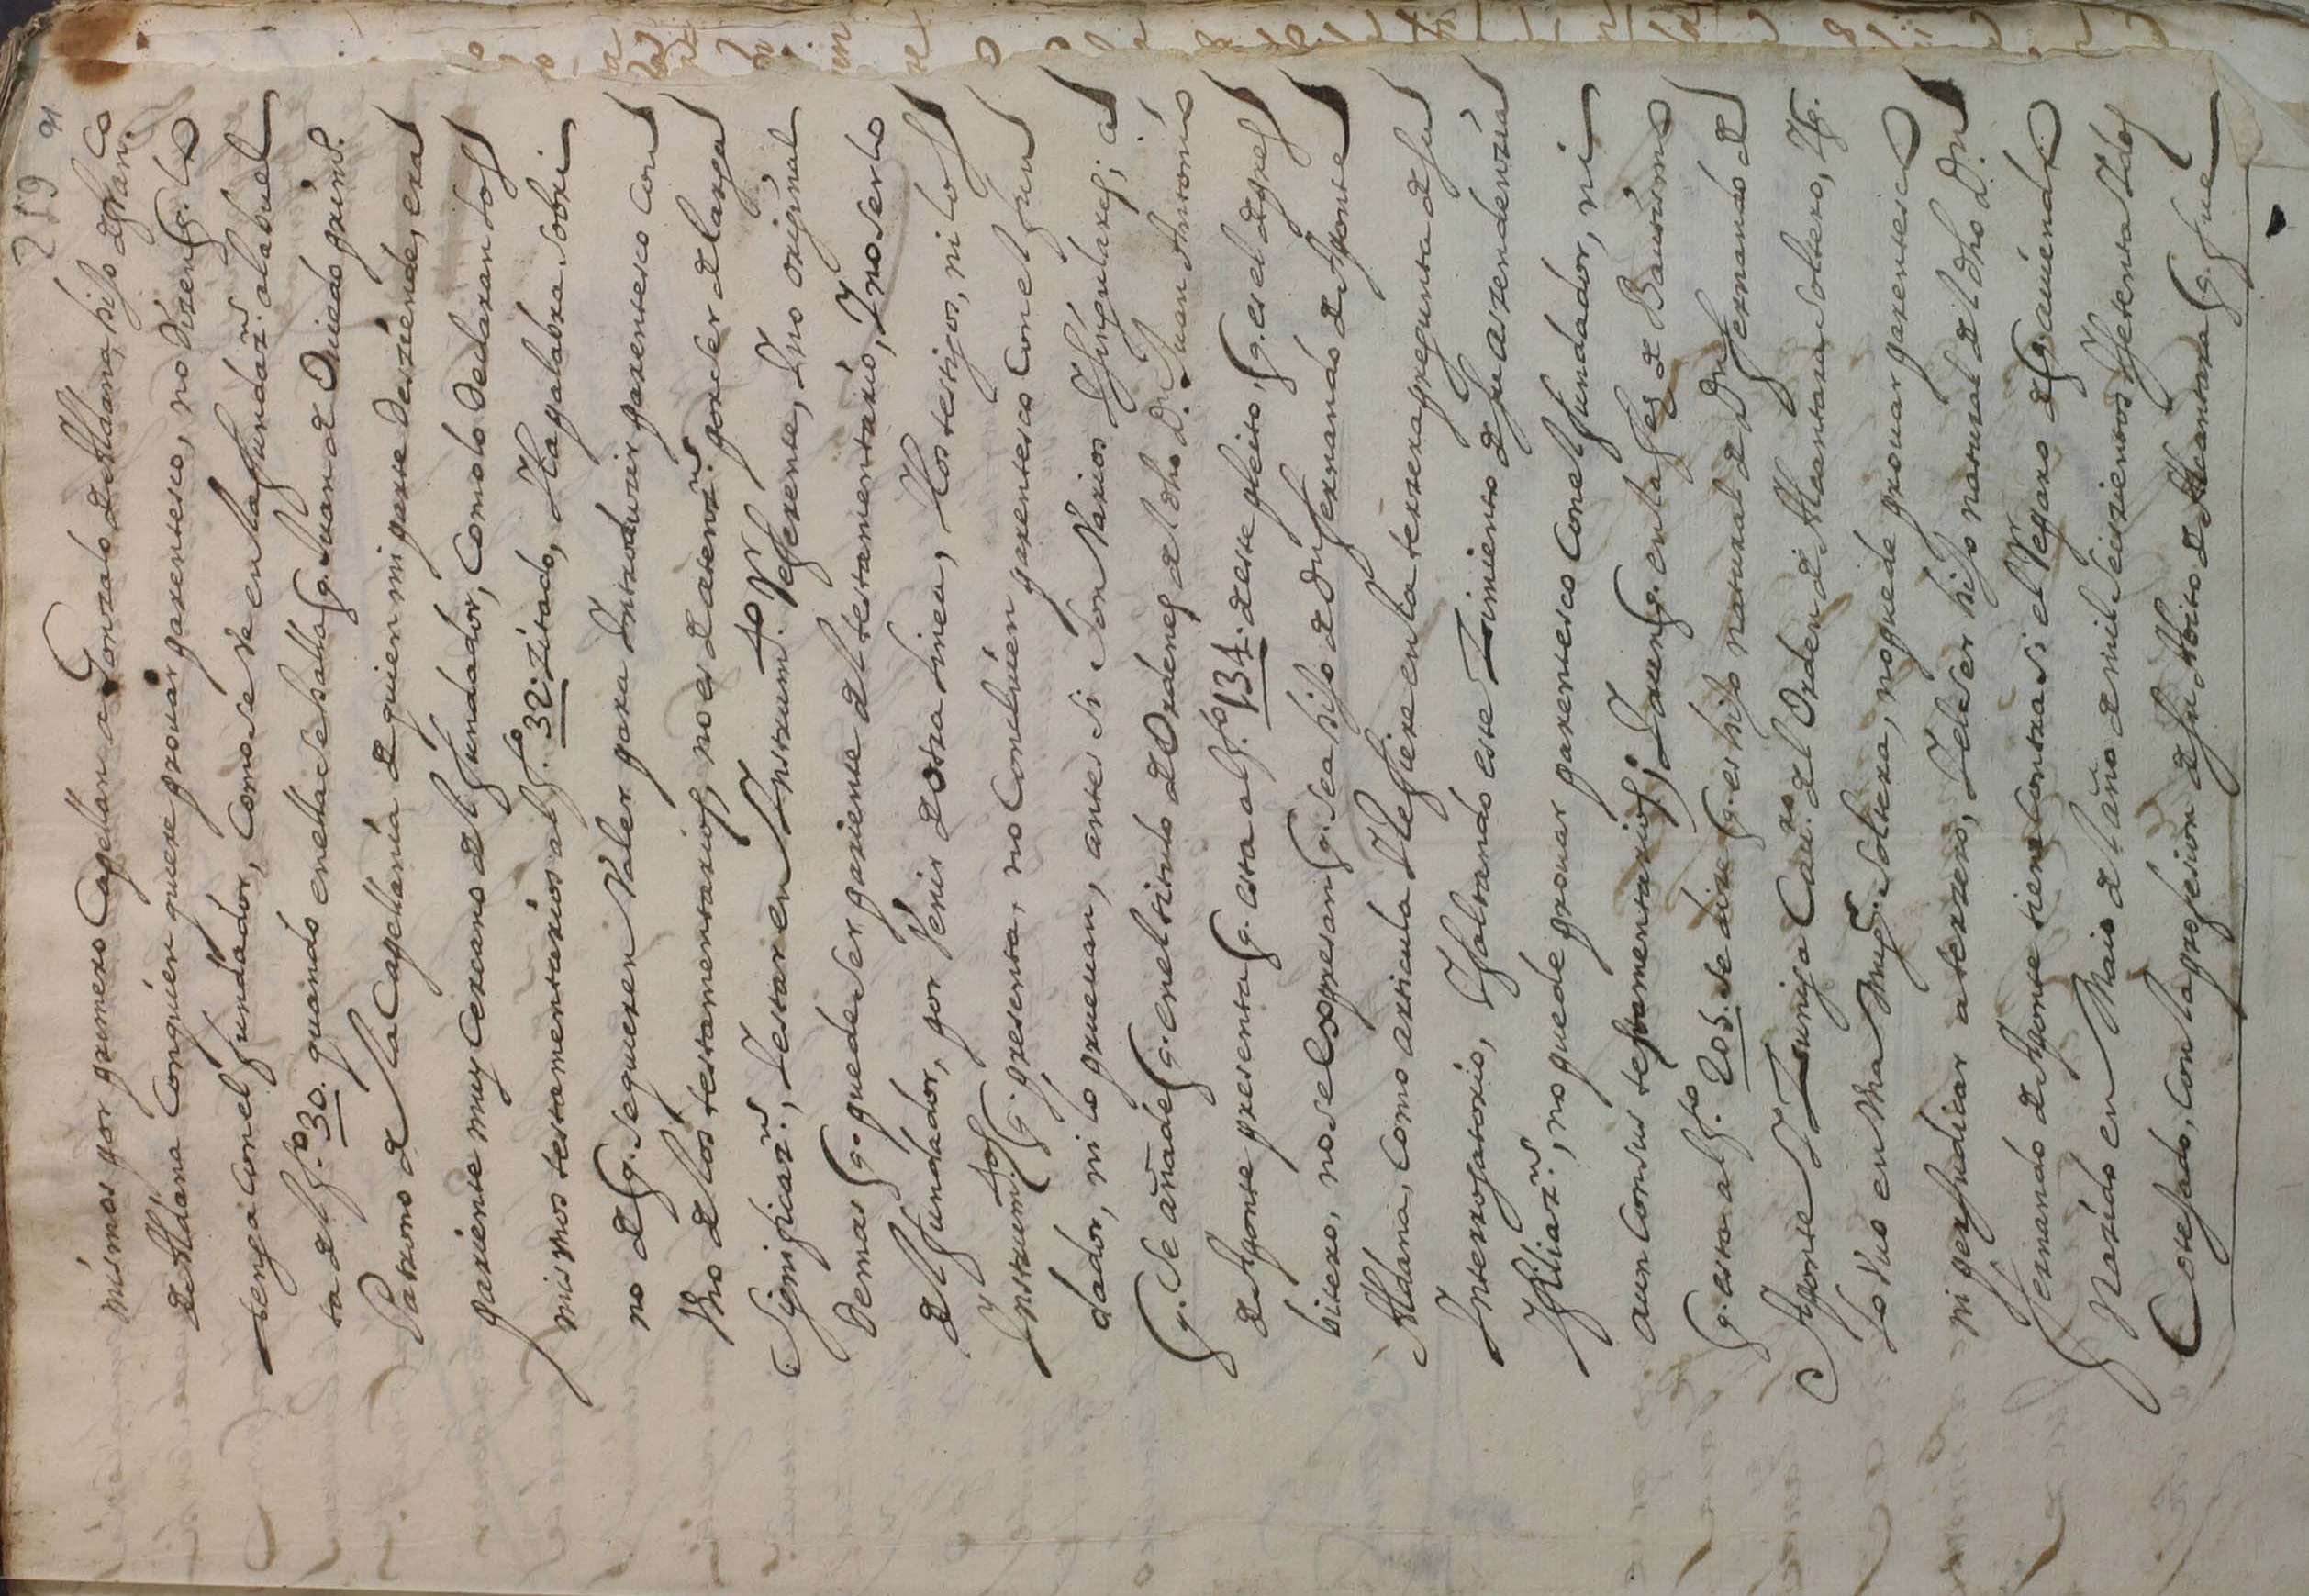 219
91
mísmos por primero Capellan a Gonzalo de Aldana, hijo de fran.co
de Aldana Con quíen quiere prouar parentesco, no dizen q. lo
tenga con el fundador, como se ve en la fundaz.n a la buel
ta del f.º 30. quando en ella se halla q. Juan de Ouiedo prim.º
Patrono de la Capellanía de quien mi parte deszíende, era
pariente muy cercano del fundador, como lo declaran los
mismos testamentaríos al f.º 32. zitado, Y la palabra sobri
no de q. se quieren Valer para Introduzir parentesco con
Vno de los testamentarios, no es de atenz.n por ser de larga
Significaz.n, Y estar en Instrum.to Referente, Y no orijinal,
demas q. puede ser pariente del testamentario, Y no serlo
del fundador, por Venir de otra linea, Y los testigos, ni los
Instrum.tos q. presenta, no Concluíen parentesco con el fun
dador, ni lo prueuan, antes si son Varios Y Singulares; a
q. Se añade q. en el titulo de Ordenes del dho D. Juan Antonio
de Aponte presenta q. esta al f.º 134. deste pleito, q. es el de pres
bitero, no se expresan q. sea hijo de Dn fernando de Aponte
Aldana, como articula Y Refiere en la tercera pregunta de su
Interrogatorio, Y faltando este Zimiento de su aszendenzia
Y filiaz.n, no puede prouar parentesco con el fundador, ni
aun con sus testamentarios; Y aunq. en la fee de Bautismo
q. esta al f.º 205. se dize q. es hijo natural de Dn fernando de
Aponte Y Zuniga Cau.ro del Orden de Alcantara soltero, Y q.
lo tuo en Vna Mug.r soltera, no puede prouar parentesco
ni perjudicar a terzero, Y de ser hijo natural del dho Dn
fernando de Aponte tiene contra si el Reparo de q. auiendo
Nazido en Maio del año de mil seiszientos Y setenta Y dos
Cotejado, con la profesion de su Abito de Alcantara q. fue